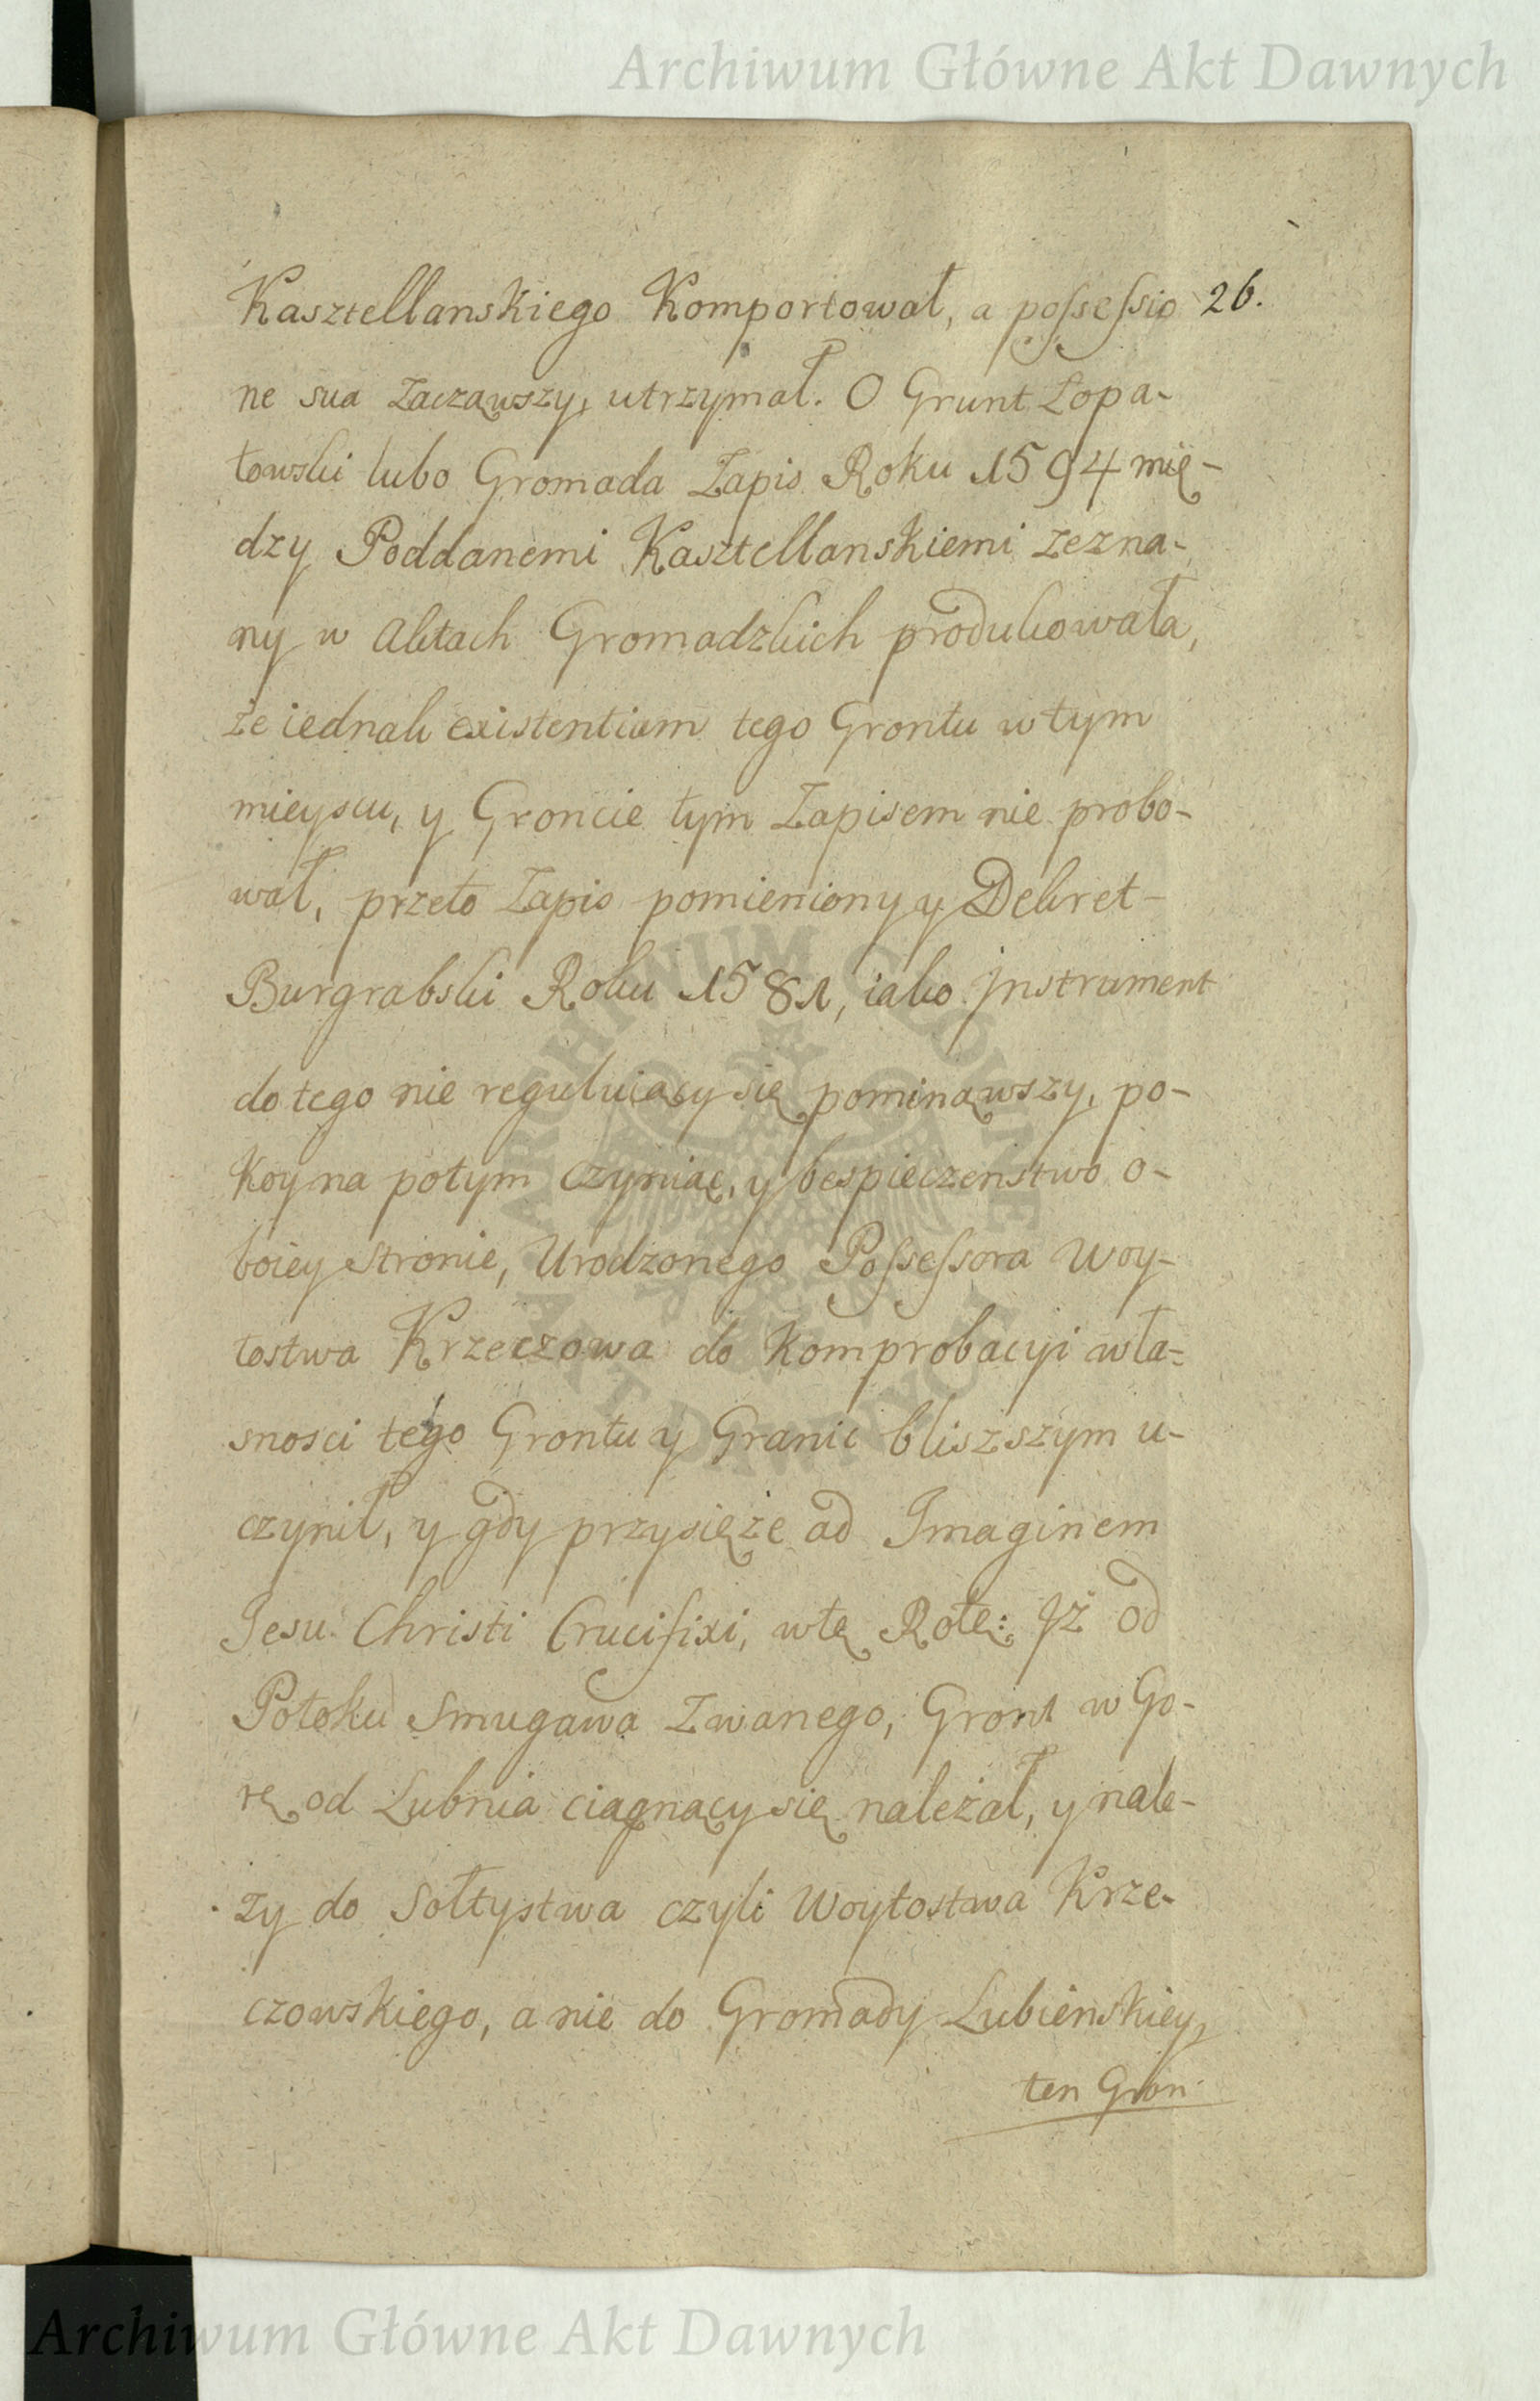 Archiwum Główne Akt Dawnych
Kasztellanskiego Komportował, a possessio 26.
ne sua zacząwszy, utrzymał. O Grunt Łopa-
towski lubo Gromada Zapis Roku 1594 mię-
dzy Poddanemi Kasztellanskiemi zezna-
ny w Aktach Gromadzkich produkowała,
że iednak existentiam tego Grontu w tym
mieyscu, y Groncie tym Zapisem nie probo-
wał, przeto Zapis pomieniony y Dekret
Burgrabski Roku 1581, iako jnstrument
do tego nie reguluiący się pominąwszy, po-
koy na potym czyniąc, y bespieczeństwo o-
boiey stronie, Urodzonego Possessora Woy-
tostwa Krzeczowa do Komprobacyi wła-
snosci tego Grontu y Granic bliższym u-
czynił, y gdy przysięże ad Imaginem
Jesu Christi Crucifixi, w tę Rotę: Jż od
Potoku Smugawa Zwanego, Gront w Go-
rę od Lubnia ciągnący się należał, y nale-
ży do Sołtystwa czyli Woytostwa Krze-
czowskiego, a nie do Gromady Lubienskiey,
ten Gron
ARCHIWUM GŁÓWNE
AKT DAWNYCH
Archiwum Główne Akt Dawnych